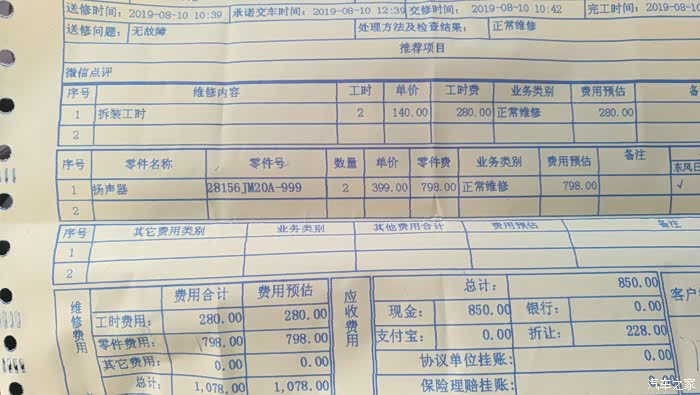 送修时间: 2019-08-10 10:39 承诺交车时间: 2019-08-10 12:39 交修时间: 2019-08-10 10:42 完工时间: 2019-08-10
送修问题: 无故障 处理方法及检查结果: 正常维修
推荐项目
微信点评
序号 维修内容 工时 单价 工时费 业务类别 费用预估
1 拆装工时 2 140.00 280.00 正常维修 280.00
2
序号 零件名称 零件号 数量 单价 零件费 业务类别 费用预估 备注 东风日
1 扬声器 28156JM20A-999 2 399.00 798.00 正常维修 798.00 √
2
序号 其它费用类别 业务类别 其他费用合计 费用预估 备注
1
2
维修费用 费用合计 费用预估
工时费用: 280.00 280.00
零件费用: 798.00 798.00
其它费用: 0.00 0.00
总计: 1,078.00 1,078.00
应收费用 总计: 850.00
现金: 850.00 银行: 0.00
支付宝: 0.00 折让: 228.00
协议单位挂账: 0.00
保险理赔挂账: 0.00
客户
汽车之家